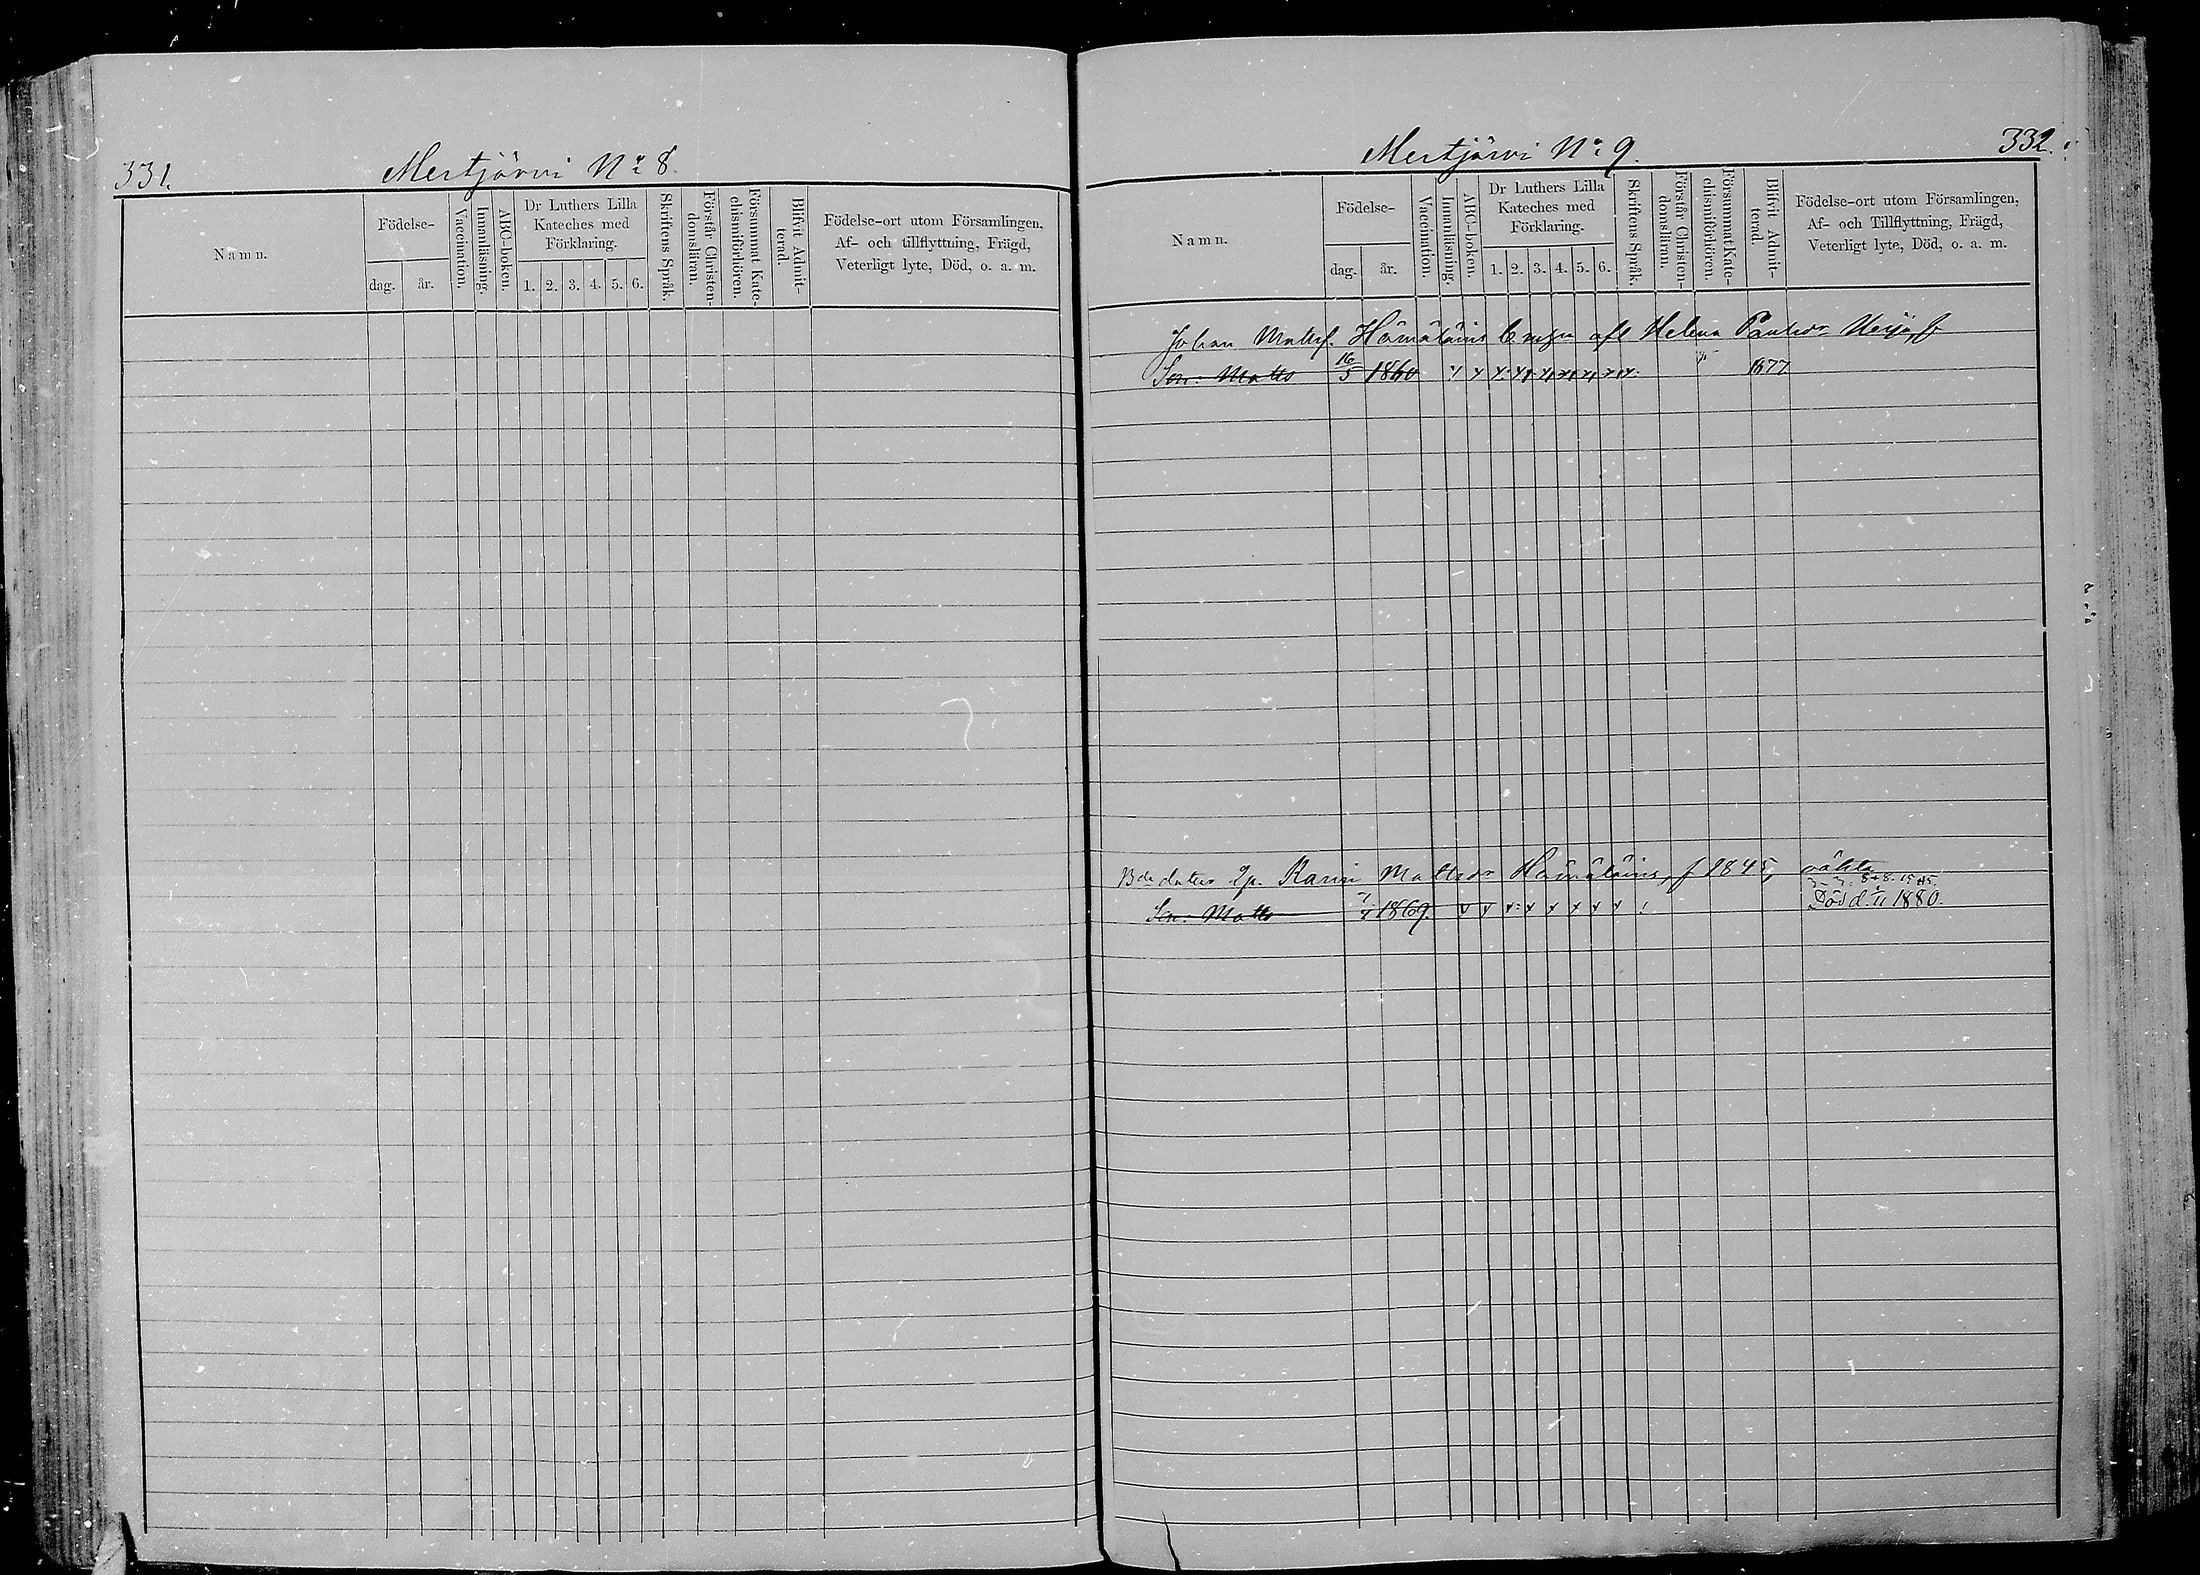 331.
Mertjärvi Nr 8.
Namn.
Födelse-
dag. år.
Vaccination.
Innanläsning.
ABC-boken.
Dr Luthers Lilla
Kateches med
Förklaring.
1. 2. 3. 4. 5. 6.
Skriftens Språk.
Förstår Christen-
domsläran.
Försummat Kate-
chismiförhören.
Blifvit Admit-
terad.
Födelse-ort utom Församlingen,
Af- och tillflyttning, Frägd,
Veterligt lyte, Död, o. a. m.
332.
Mertjärvi No 9.
Namn.
Födelse-
dag. år.
Vaccination.
Innanläsning.
ABC-boken.
Dr Luthers Lilla
Kateches med
Förklaring.
1. 2. 3. 4. 5. 6.
Skriftens Språk.
Förstår Christen-
domsläran.
Försummat Kate-
chismiförhören.
Blifvit Admit-
terad.
Födelse-ort utom Församlingen,
Af- och Tillflyttning, Frägd,
Veterligt lyte, Död, o. a. m.
Johan Mattsf. Hämäläins afl Helena Paulsdr
Son: Matts 16/5 1860 1877
Karin Mattsdr Hämäläins, f 1845,
Son: Matts 1869. Död d. 1880.